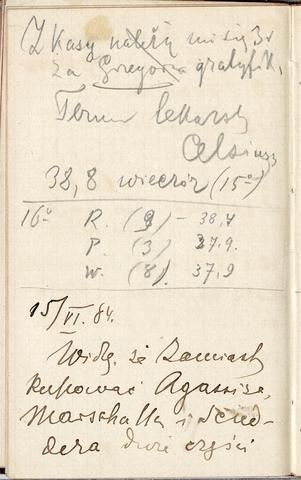 Z kasy należy mi się 3r
za Grzegorza gratyfik.
Termom lekarski
Celsiusz
38,8 wieczór (15º)
16º R. (9) – 38,4
P. (3) 37.9.
W. (8). 37,9
15/VI. 84.
Widzę, że zamiast
kupować Agassiza,
Marschalla i Scud-
dera dwie części